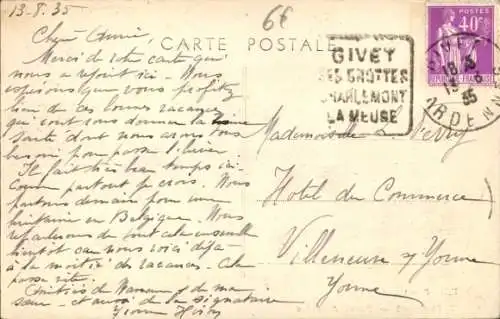 13.8.35
6€
CARTE POSTALE
Chère Amie,
Merci de votre carte qui
nous a réjouit ici. Nous
espérons que vous profitez
bien de ces bonnes vacances
qui vont vous donner la bonne
santé dont nous avons tous
besoin pour passer l'hiver
Il fait très beau temps ici
comme partout je crois. Nous
partons demain pour une
en Belgique. Nous
reparlerons de tout cela ensemble
bientôt car nous voici déjà
à la moitié des vacances. Cela
passe vite.
Amitiés de Maman & de ma
sœur et aussi de la signataire
Yvonne
GIVET
SES GROTTES
CHARLEMONT
LA MEUSE
POSTES
40c
REPUBLIQUE FRANÇAISE
18
35
ARDENNES
Mademoiselle L.
Hotel du Commerce
Villeneuve s/ Yonne
Yonne